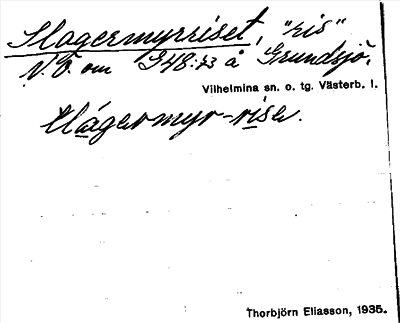 Slagermyrriset, "ris"
N.Ö. om G48:73 å Grundsjö.
Vilhelmina sn. o. tg. Västerb. l.
-rise.
Thorbjörn Eliasson, 1935.